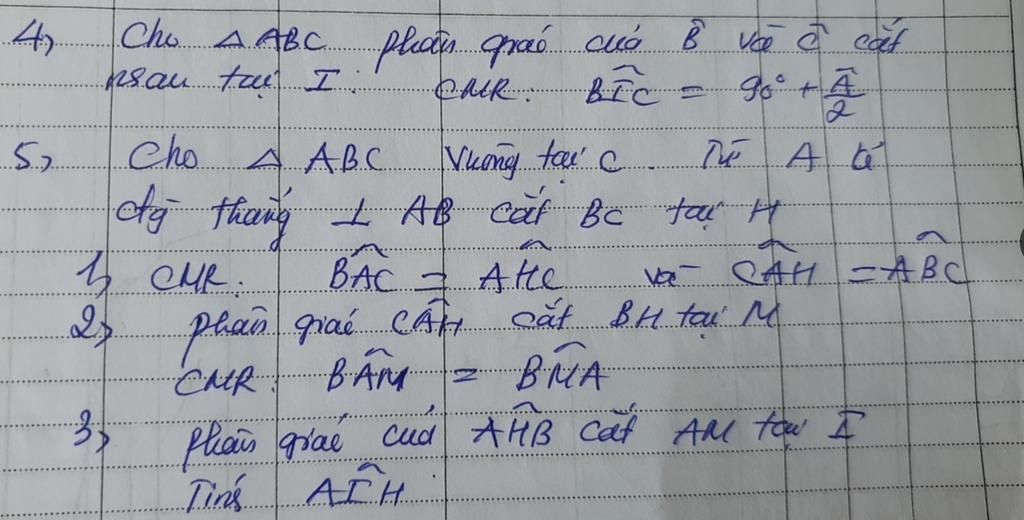 4, Cho △ ABC phân giác của B̂ và Ĉ cắt
nhau tại I. CMR: BÎC = 90° + Â/2
5, Cho △ ABC vuông tại C. Từ A kẻ
đg thẳng ⊥ AB cắt BC tại H
1, CMR: BÂC = AĤC và CÂH = AB̂C
2, phân giác CÂH cắt BH tại M
CMR: BÂM = BM̂A
3, phân giác của AĤB cắt AM tại I
Tính AÎH